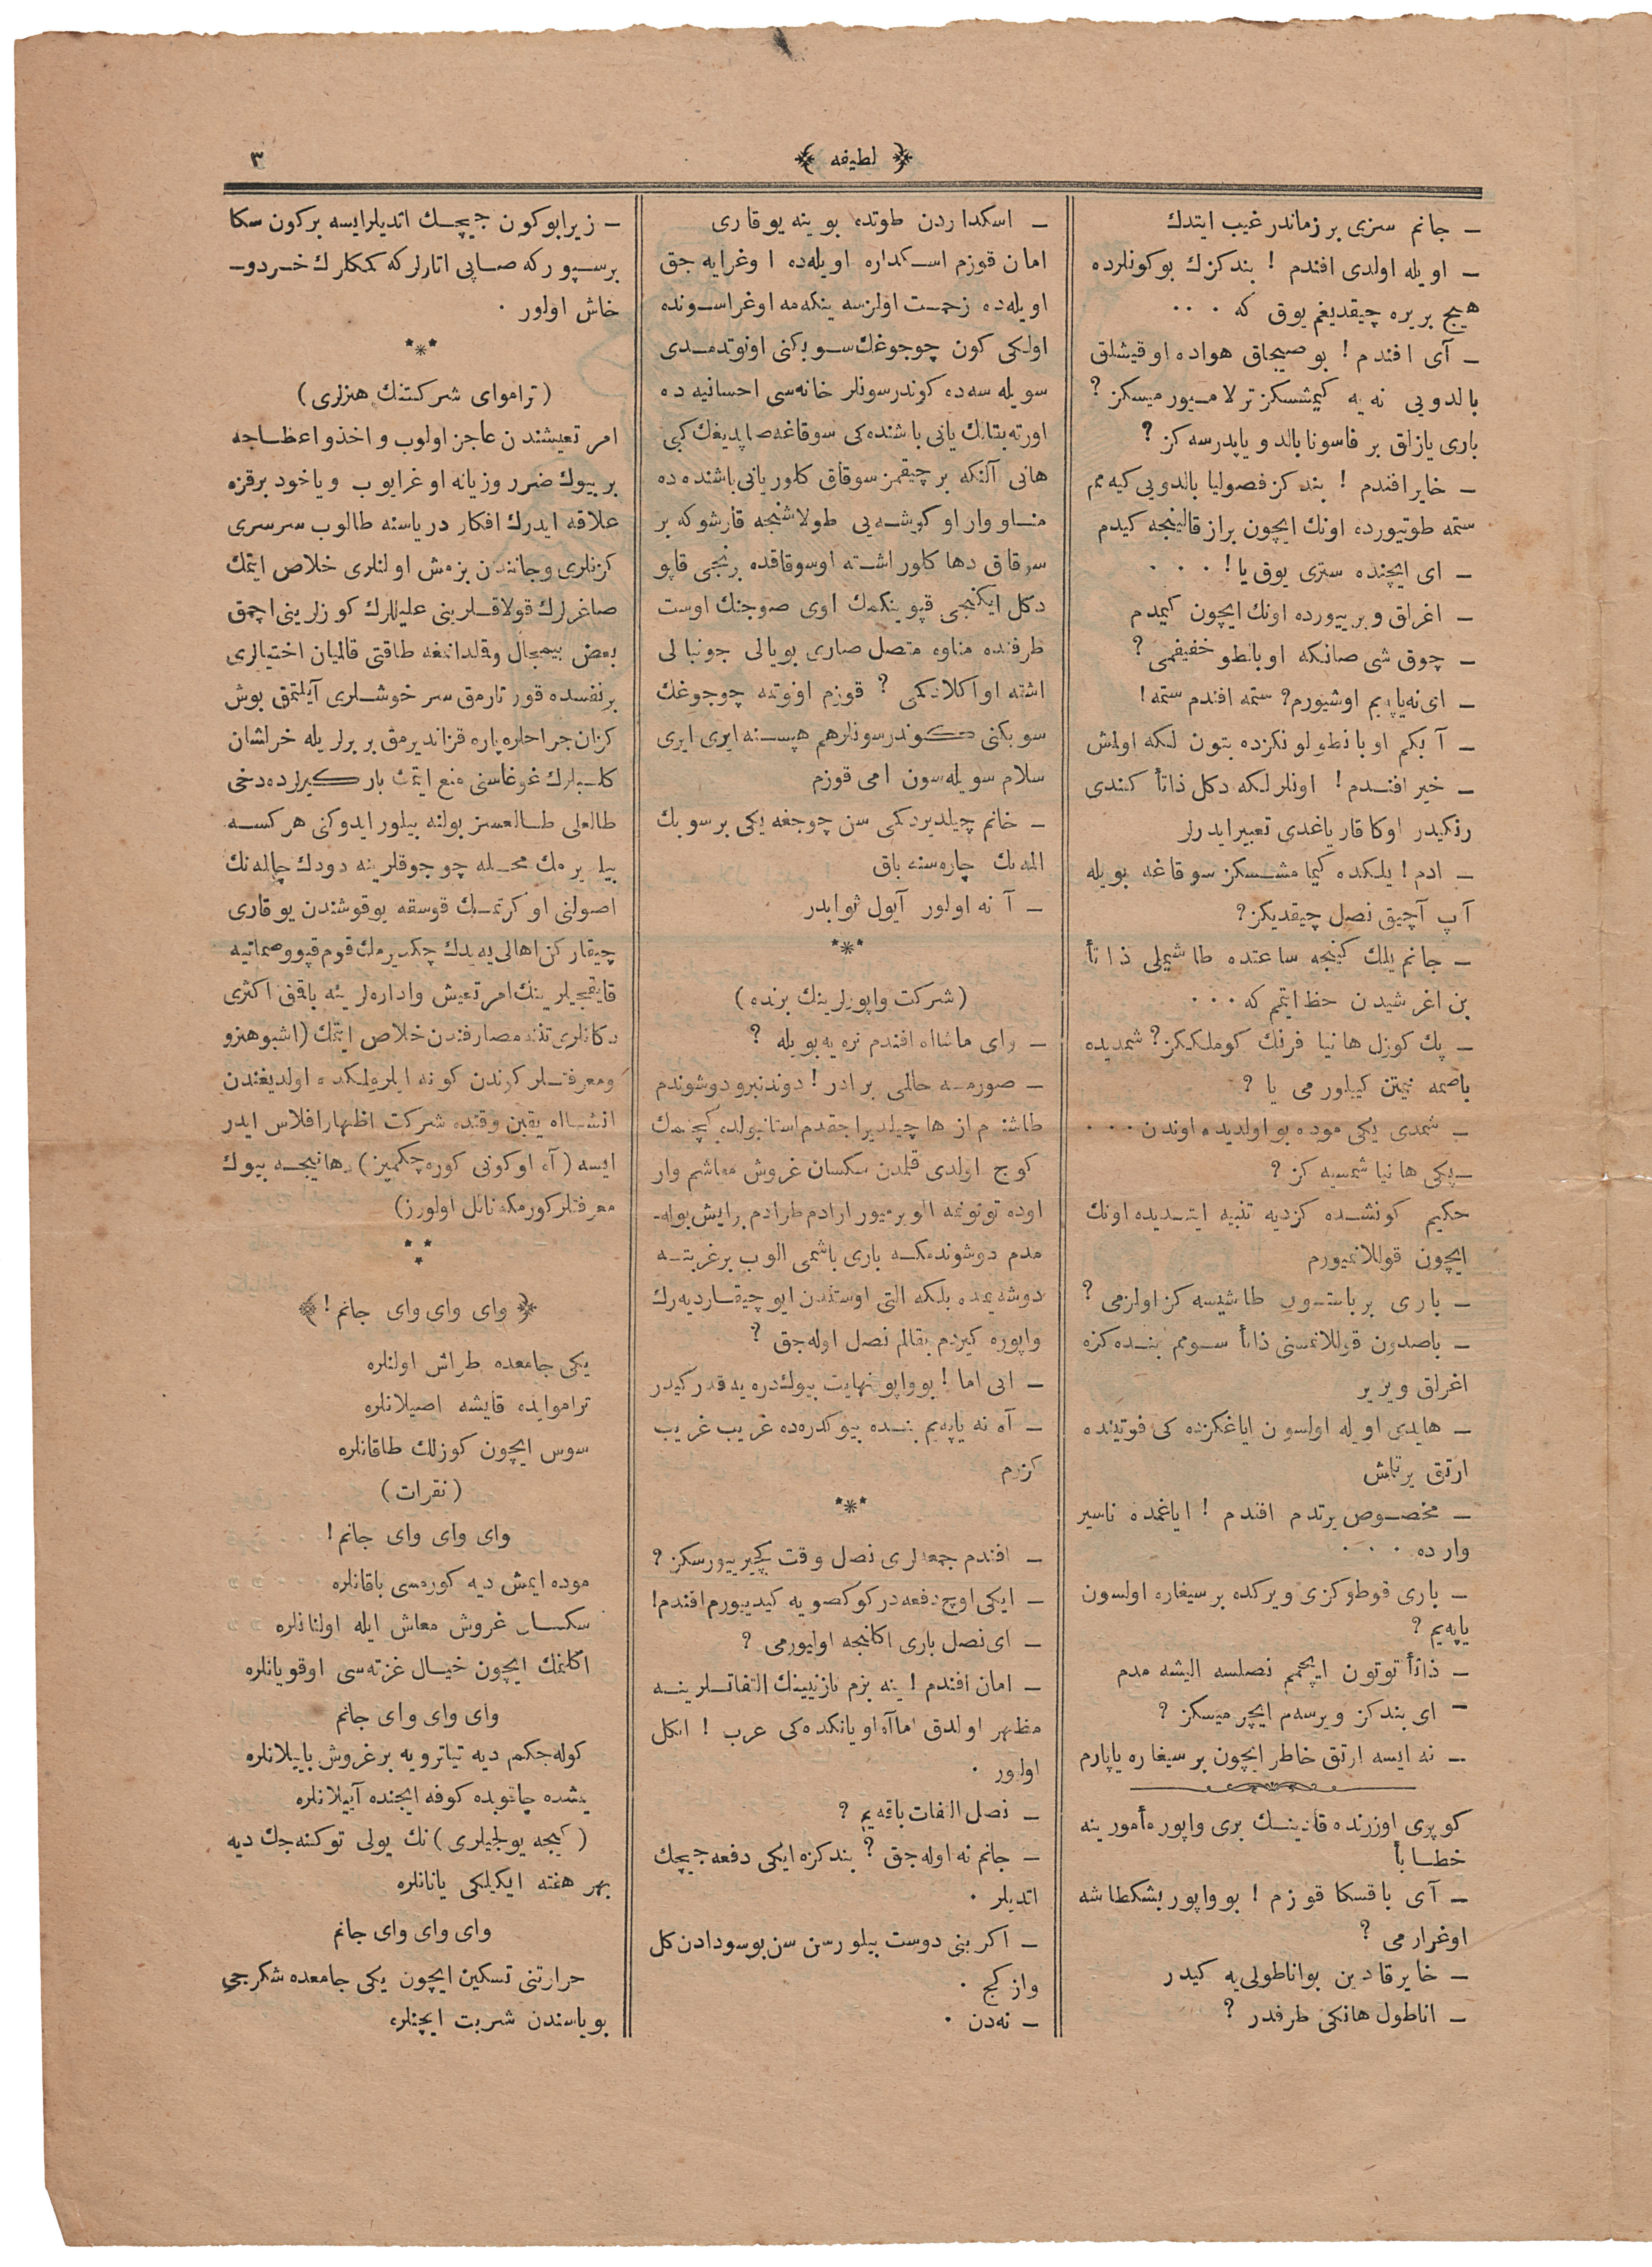 لطیفه
٣
ـ جانم سزی بر زماندر غیب ایتدك
ـ اویله اولدی افندم ! بندكزك بوكونلرده
هیچ بریره چیقدیغم یوق كه . . .
ـ آی افندم ! بو صیجاق هواده او قیشلق
پالدویی نه یه كیمشسكز ترلامیور میسكز ؟
باری یازلق بر فاسونا پالدو یاپدرسه كز ؟
ـ خایر افندم ! بندكز فصولیا پالدویی كیه مم
ستمه طوتیورده اونك ایچون براز قالینجه كیدم
ـ ای ایچنده ستری یوق یا ! . . .
ـ اغرلق ویرییورده اونك ایچون كیمدم
ـ چوق شی صانكه او پانطو خفیفمی ؟
ـ ای نه یاپه یم اوشیورم ؟ ستمه افندم ستمه !
ـ آ بكم او پانطولونكزده بتون لكه اولمش
ـ خیر افندم ! اونلر لكه دكل ذاتاً كندی
رنكیدر اوكا قار یاغدی تعبیر ایدرلر
ـ ادم ! یلكده كیمامشسكز سوقاغه بویله
آپ آچیق نصل چیقدیكز ؟
ـ جانم یلك كینجه ساعتده طاشیملی ذاتاً
بن اغر شیدن حظ ایتمم كه . . .
ـ پك كوزل هانیا فرنك كوملككز ؟ شمدیده
باصمه نیمتن كیلور می یا ؟
ـ شمدی یكی موده بو اولدیده اوندن . . .
ـ پكی هانیا شمسیه كز ؟
حكیم كونشده كزدیه تنبیه ایتدیده اونك
ایچون قوللانمیورم
ـ باری بر باستون طاشیسه كز اولزمی ؟
ـ باصدون قوللانمسنی ذاتاً سومم بنده كزه
اغرلق ویریر
ـ هایدی اویله اولسون ایاغكزده كی فوتینده
ارتق یرتلمش
ـ مخصوص یرتدم افندم ! ایاغمده ناسیر
وارده . . .
ـ باری قوطوكزی ویركده بر سیغاره اولسون
یاپه یم ؟
ـ ذاتاً توتون ایچمم نصلسه الیشه مدم
ـ ای بندكز ویرسه م ایچر میسكز ؟
ـ نه ایسه ارتق خاطر ایچون بر سیغاره یاپارم
كوپری اوزرنده قادینك بری واپور مأمورینه
خطاباً
ـ آی باقسكا قوزم ! بو واپور بشكطاشه
اوغرار می ؟
ـ خایر قادین بو اناطولی یه كیدر
ـ اناطول هانكی طرفدر ؟
ـ اسكداردن طوتده بوینه یوقاری
امان قوزم اسكداره اویله ده اوغرایه جق
اویله ده زحمت اولزسه ینكه مه اوغراسونده
اولكی كون چوجوغك سوبكنی اونوتدمدی
سویله سه ده كوندرسونلر خانه سی احسانیه ده
هانی آلتكه بر چیقمز سوقاق كلور یانی باشنده ده
مناو وار او كوشه یی طولاشنجه قارشوكه بر
سوقاق دها كلور اشته اوسوقاقده برنجی قاپو
دكل ایكنجی قپو ینكمك اوی صوجنك اوست
طرفنده مناوه متصل صاری بویالی جونبالی
اشته او اكلادكمی ؟ قوزم اونوتمه چوجوغك
سوبكنی كوندرسونلر هم هپسنه ایری ایری
سلام سویله سون امی قوزم
ـ خانم چیلدیردكمی سن چوجغه یكی بر سوبك
المه نك چاره سنه باق
ـ آ نه اولور آیول ثوابدر
(شركت واپورلرینك برنده)
ـ وای ماشااه افندم نره یه بویله ؟
ـ صورمه حالمی برادر ! دوندنبرو دوشوندم
طاشندم از ها چیلدیراجقدم استانبولده كچنمك
كوج اولدی قلمدن سكسان غروش معاشم وار
اوده توتونمه الویرمیور ارادم طرادم بر ایش بوله ـ
مدم دوشوندمكه باری باشمی الوب بر غربته
دوشه یمده بلكه التی اوستندن ایو چیقار دیه رك
واپوره كیردم بقالم نصل اوله جق ؟
ـ ایی اما ! بو واپو نهایت بیوكدره یه قدر كیدر
ـ آه نه یاپه یم بنده بیوكدره ده غریب غریب
كزرم
ـ افندم جمعه لری نصل وقت كچیرییورسكز ؟
ـ ایكی اوچ دفعه در كوكصویه كیدییورم افندم !
ـ ای نصل باری اكلنجه اولیورمی ؟
ـ امان افندم ! ینه بزم نازنینك التفاتلرینه
مظهر اولدق اما آه او یانكده كی عرب ! انكل
اولور .
ـ نصل التفات باقه یم ؟
ـ جانم نه اوله جق ؟ بندكزه ایكی دفعه جیچك
اتدیلر .
ـ اكر بنی دوست بیلورسن سن بو سودادن كل
واز كچ .
ـ نه دن .
ـ زیرا بوكون جیچك اتدیلر ایسه بركون سكا
بر سپوركه صاپی اتارلر كه كمكلرك خردو ـ
خاش اولور .
(تراموای شركتنك هنرلری)
امر تعیشندن عاجز اولوب و اخذ و اعطاجه
بر بیوك ضرر و زیانه اوغرایوب و یاخود بر قزه
علاقه ایدرك افكار دریاسنه طالوب سرسری
كزنلری وجانندن بزمش اولنلری خلاص ایتمك
صاغرلرك قولاقلرینی علیللرك كوزلرینی اچمق
بعض بیمجال وقلدانمغه طاقتی قالمیان اختیارلری
بر نفسده قورتارمق سر خوشلری آیلتمق بوش
كزان جراحلره پاره قزاندیرمق بربرلریله خراشان
كلبلرك غوغاسنی منع ایتمك باركیرلرده دخی
طالعلی طالعسز بولنه بیلور ایدوكنی هركسه
بیلدیرمك محله چوجوقلرینه دودك چالمه نك
اصولنی اوكرتمك قوسقه یوقوشندن یوقاری
چیقاركن اهالی یه یدك چكدیرمك قوم قپو و صماتیه
قایقجیلرینك امر تعیش و اداره لرینه باقق اكثری
دكانلری تنته مصارفندن خلاص ایتمك (اشبو هنر و
ومعرفتلر كوندن كونه ایلرولمكده اولدیغندن
انشااه یقین وقتده شركت اظهار افلاس ایدر
ایسه (آه او كونی كوره جكمیز) دها نیجه بیوك
معرفتلر كورمكه نائل اولورز)
وای وای وای جانم !
یكی جامعده طراش اولنلره
تراموایده قایشه اصیلانلره
سوس ایچون كوزلك طاقانلره
(نقرات)
وای وای وای جانم !
موده ایمش دیه كورمسی باقانلره
سكسان غروش معاش ایله اولنانلره
اكلنمك ایچون خیال غزته سی اوقویانلره
وای وای وای جانم
كوله جكم دیه تیاترویه بر غروش بایلانلره
(كیجه یولجیلری) نك یولی توكنه جك دیه
بهر هفته ایكیلكی یانانلره
وای وای وای جانم
حرارتنی تسكین ایچون یكی جامعده شكرجی
بویاسندن شربت ایچنلره